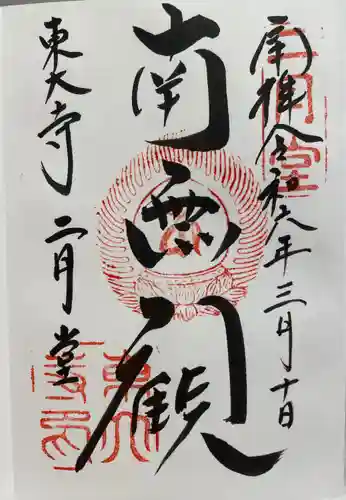 奉拝 令和六年三月十日
南無観
東大寺 二月堂
二月堂